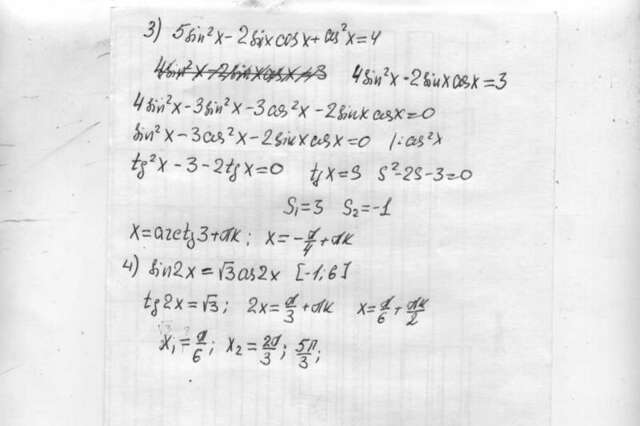 3) 5sin²x - 2sinxcosx + cos²x = 4
4sin²x - 2sinxcosx = 3 4sin²x - 2sinxcosx = 3
4sin²x - 3sin²x - 3cos²x - 2sinxcosx = 0
sin²x - 3cos²x - 2sinxcosx = 0 /: cos²x
tg²x - 3 - 2tgx = 0 tgx = S S² - 2S - 3 = 0
S₁ = 3 S₂ = -1
x = arctg3 + πk; x = -π/4 + πk
4) sin2x = √3cos2x [-1; 6]
tg2x = √3; 2x = π/3 + πk x = π/6 + πk/2
x₁ = π/6; x₂ = 2π/3; 5π/3;